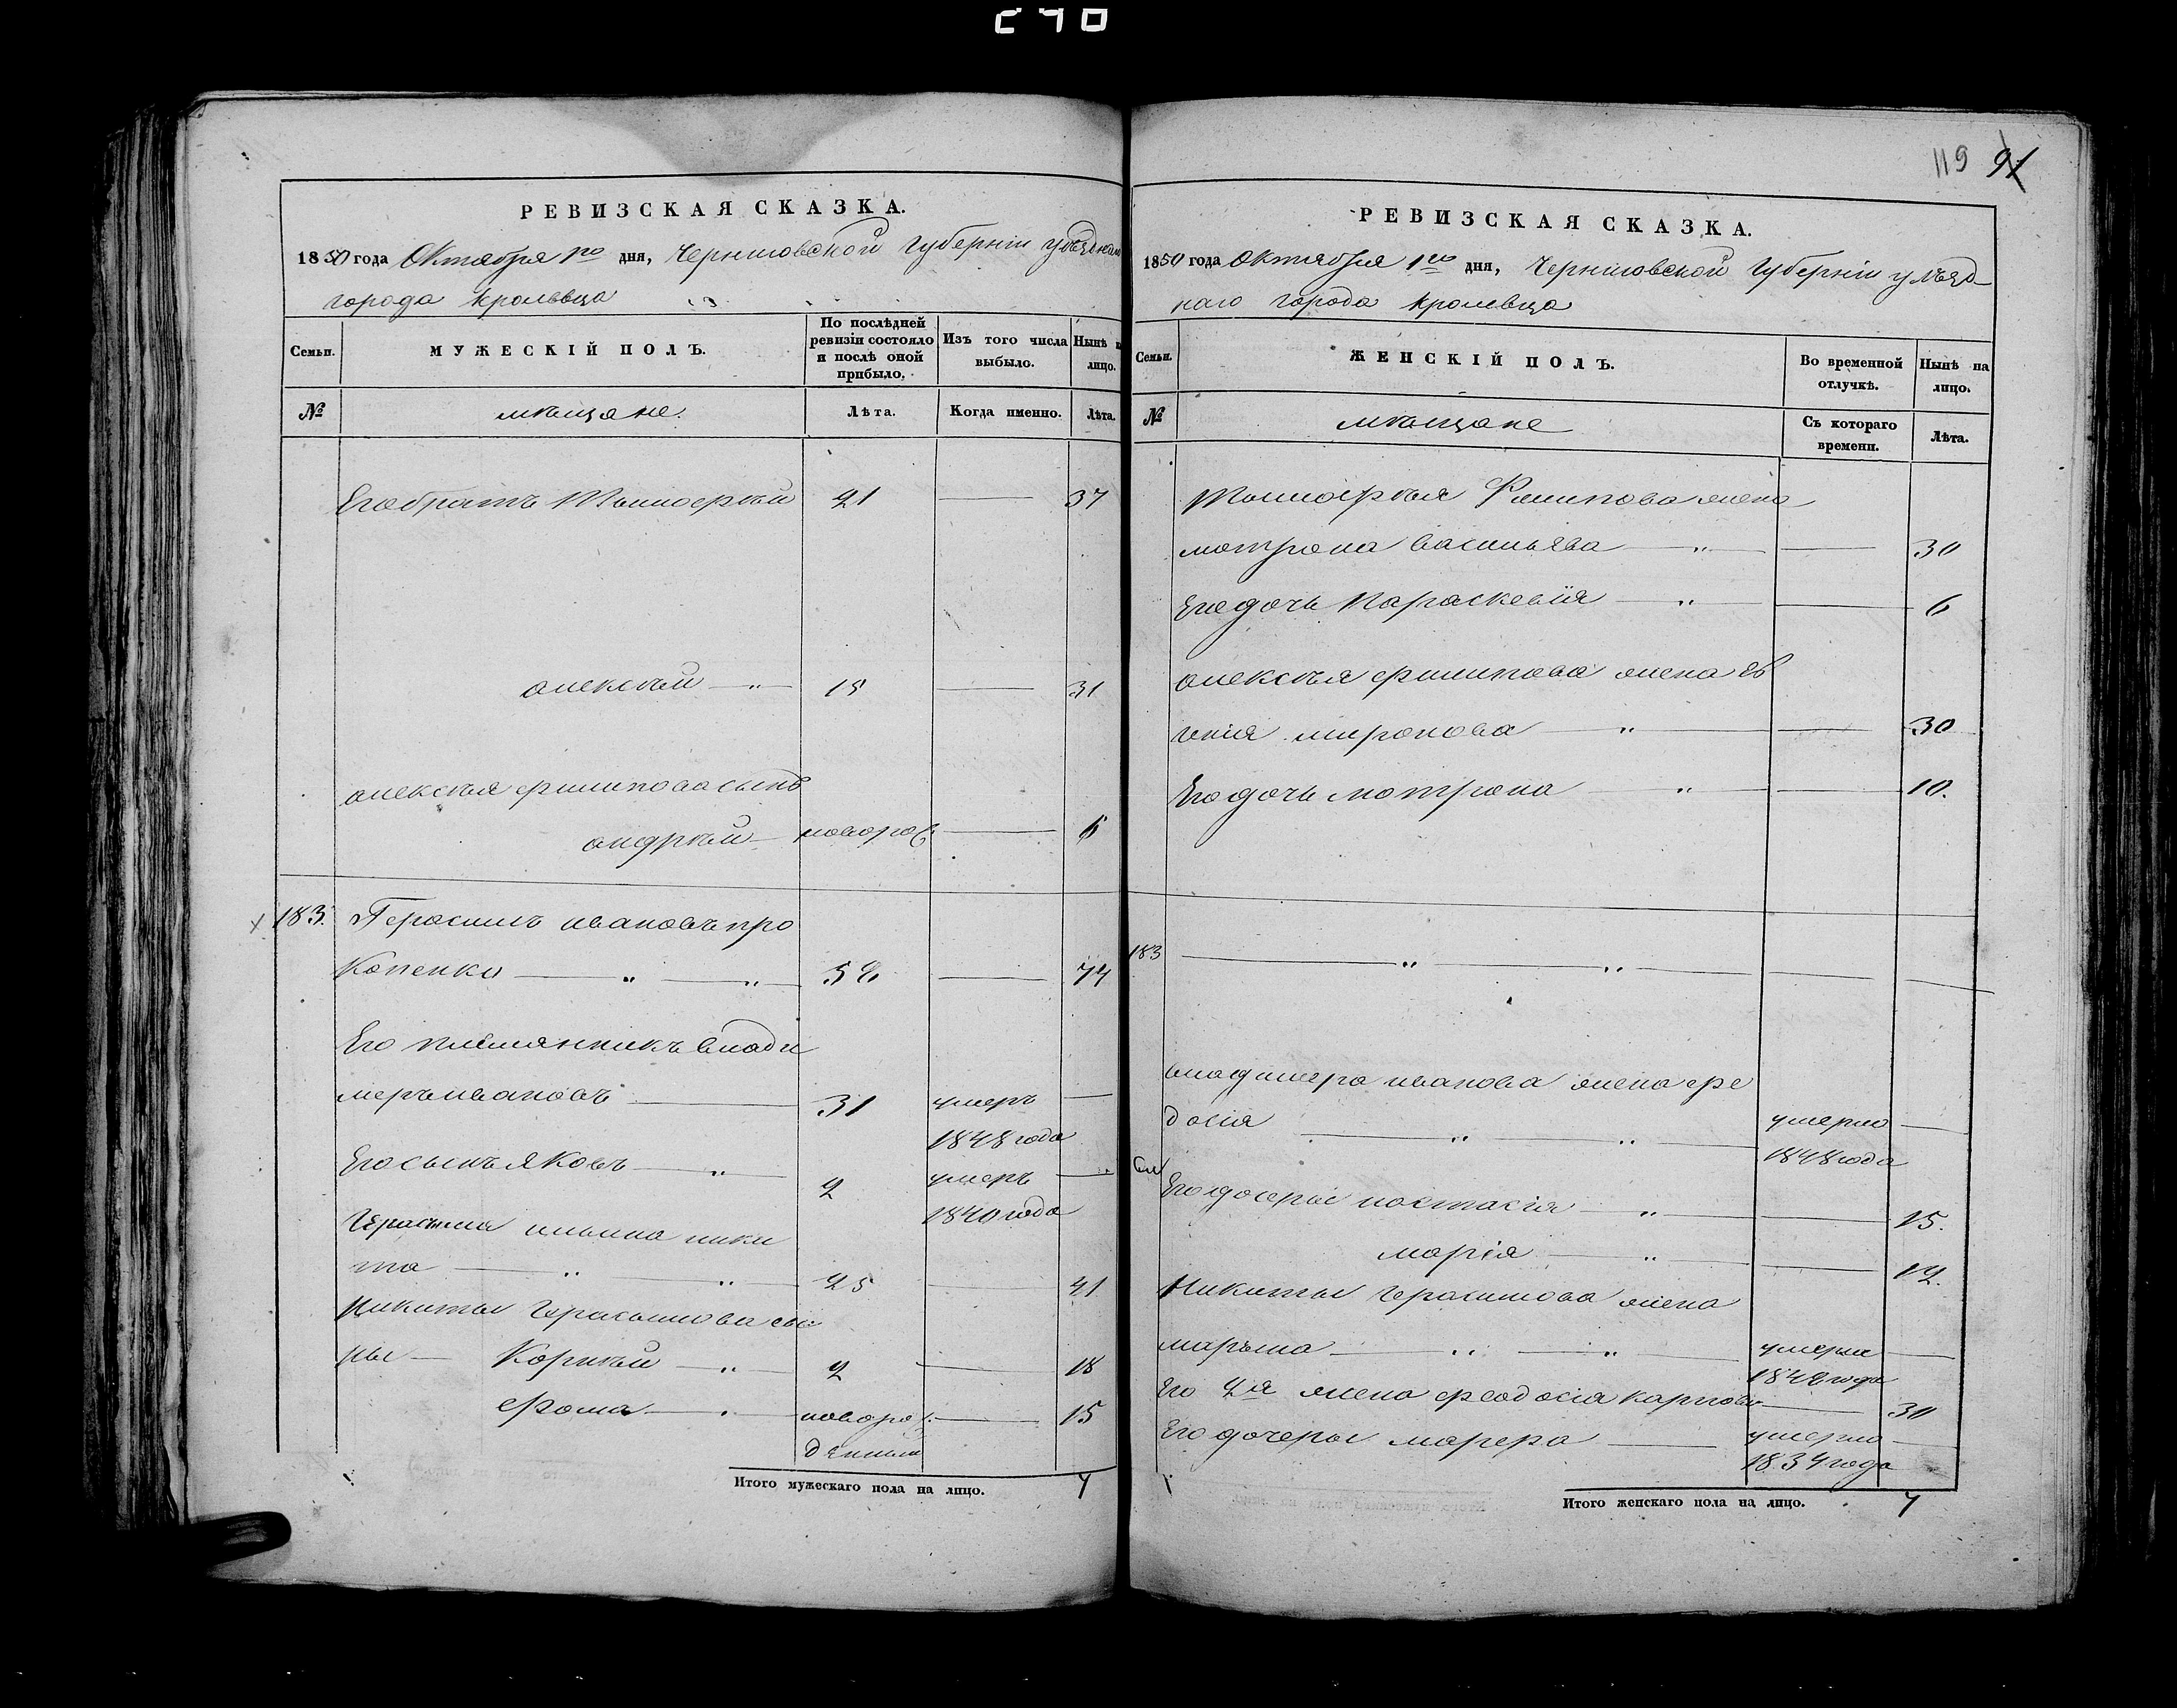 РЕВИЗСКАЯ СКАЗКА.
1850 года Октября 1го дня, Черниговской Губерніи уѣзднаго
города Кролевца
Семьи. МУЖЕСКІЙ ПОЛЪ. По послѣдней ревизіи состояло и послѣ оной прибыло. Изъ того числа выбыло. Нынѣ на лицо.
№ мѣщане. Лѣта. Когда именно. Лѣта.
Его братъ Тимофѣй 21 — 37
алексѣй — " — 15 — 31
алексѣя филипова сынъ
андрѣй — новорож — 6
183. Герасимъ ивановъ про
копенко — " — " — 58 — 74
Его племянникъ влади
меръ ивановъ — 31 умеръ —
1848 года
Его сынъ яковъ — " — 2 умеръ —
1840 года
Герасима ники
та — " — " — 25 — 41
Никиты Герасимова сы
ны — Корнѣй — " — 2 — 18
фома — " — новорож — 15
денный
Итого мужескаго пола на лицо. 7
119 91
РЕВИЗСКАЯ СКАЗКА.
1850 года Октября 1го дня, Черниговской Губерніи уѣзд
наго города Кролевца
Семьи. ЖЕНСКІЙ ПОЛЪ. Во временной отлучкѣ. Нынѣ на лицо.
№ мѣщане Съ котораго времени. Лѣта.
Тимофѣя Филипова жена
матрона васильева — " — — 30
Его дочь Параскевия — " — — 6
алексѣя филипова жена ев
генія миронова — " — — 30
Его дочь матрона — " — — 10.
183 — " — " — —
владимера иванова жена фе
досія — " — " — умерла —
1848 года
Его дочеры настасія — " — — 15.
марія — " — — 12.
Никиты Герасимова жена
марѣна — " — " — умерла —
1848 года
Его 2я жена феодосія карпова — 30
Его дочеры марфа — умерла —
1834 года
Итого женскаго пола на лицо. 7